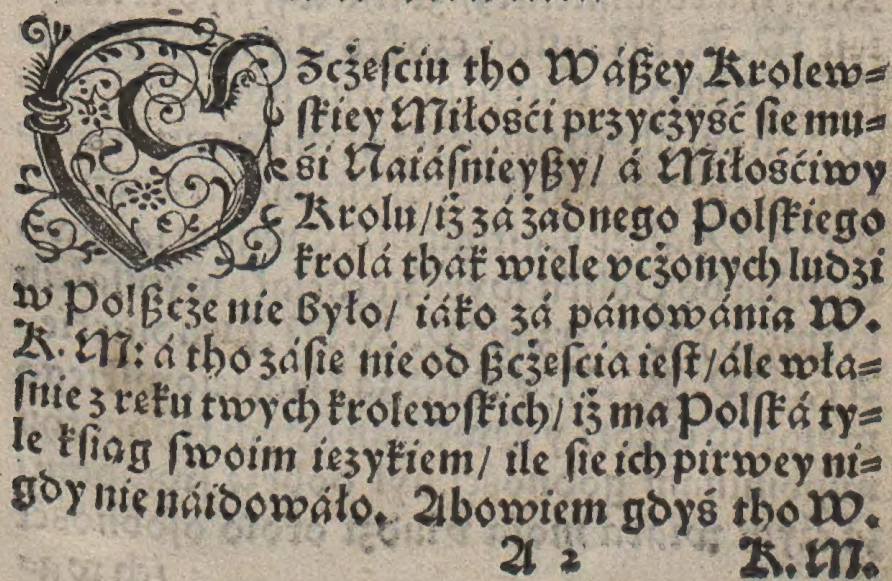 SZcżeſciu tho Wáßey Krolew⸗
ſkiey Miłośći przycżyść ſie mu⸗
śi Naiáſnieyßy/ á Miłośćiwy
Krolu/ iż zá żadnego Polſkiego
krolá thák wiele vcżonych ludzi
w Polßcże nie było/ iáko zá pánowánia W.
K. M: á tho záſie nie od ßcżeſcia ieſt/ ále wła⸗
ſnie z ręku twych krolewſkich/ iż ma Polſká ty⸗
le kſiąg ſwoim ięzykiem/ ile ſie ich pirwey ni⸗
gdy nie náidowáło. Abowiem gdyś tho W.
A 2 K. M.